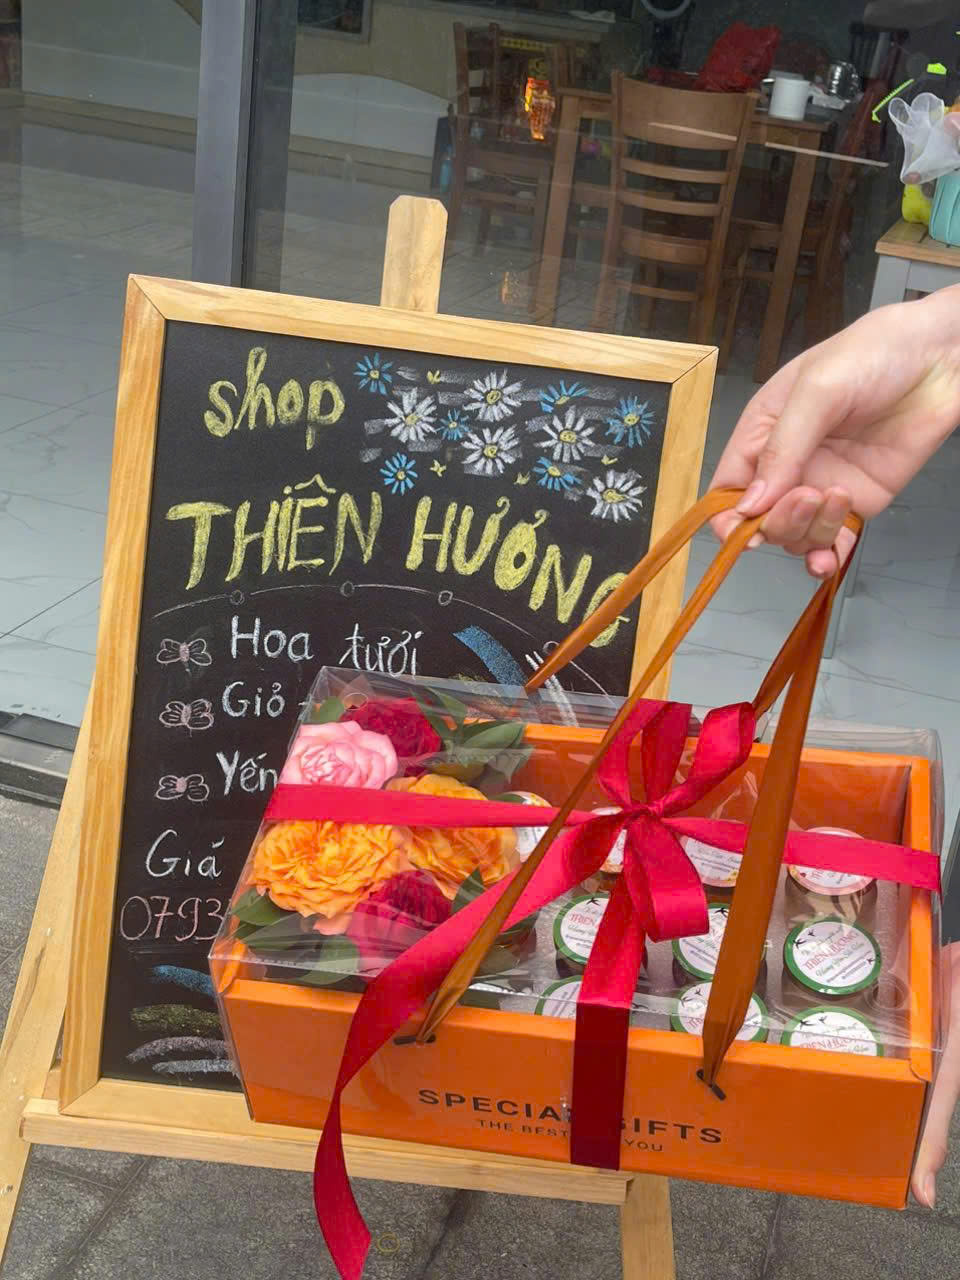 shop
THIÊN HƯƠNG
Hoa tươi
Giỏ -
Yến
Giá
0793
THIÊN HƯƠNG
SPECIAL GIFTS
THE BEST YOU